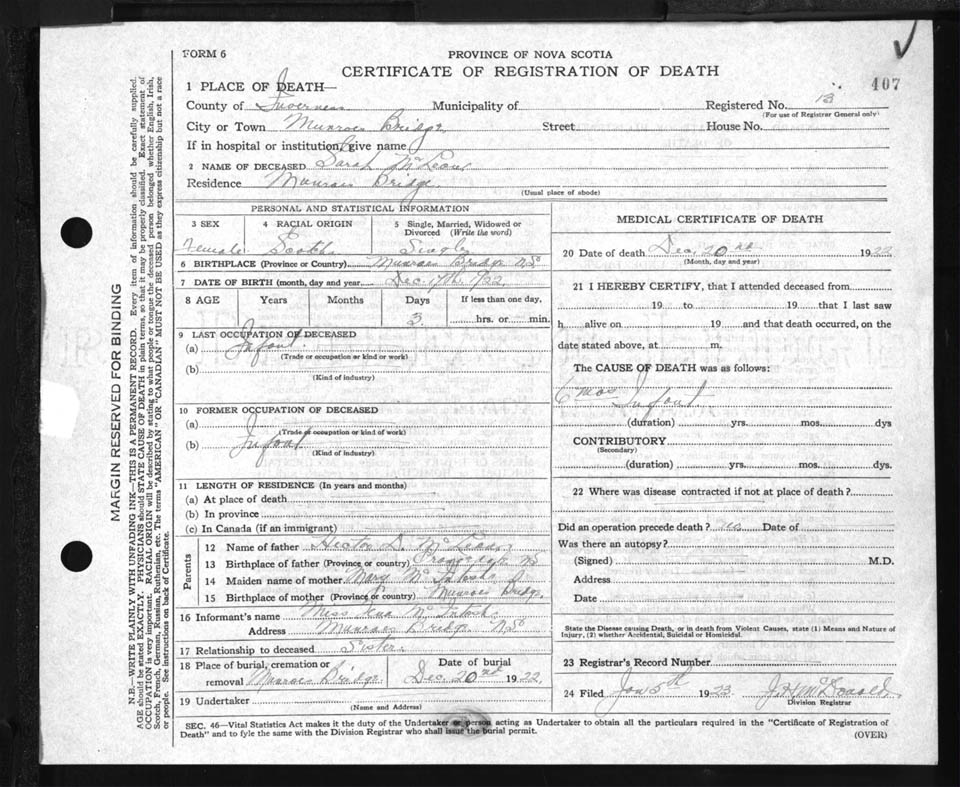 FORM 6
PROVINCE OF NOVA SCOTIA
CERTIFICATE OF REGISTRATION OF DEATH
407
1 PLACE OF DEATH—
County of Inverness Municipality of Registered No. 13
(For use of Registrar General only)
City or Town Munroes Bridge Street House No.
If in hospital or institution, give name
2 NAME OF DECEASED Sarah McLean
Residence Munroes Bridge
(Usual place of abode)
PERSONAL AND STATISTICAL INFORMATION
3 SEX 4 RACIAL ORIGIN 5 Single, Married, Widowed or Divorced (Write the word)
Female Scotch Single
6 BIRTHPLACE (Province or Country) Munroes Bridge NS
7 DATE OF BIRTH (month, day and year) Dec. 17th 1922
8 AGE Years Months Days If less than one day,
3 hrs. or min.
9 LAST OCCUPATION OF DECEASED
(a) Infant
(Trade or occupation or kind or work)
(b)
(Kind of industry)
10 FORMER OCCUPATION OF DECEASED
(a)
(Trade or occupation or kind of work)
(b) Infant
(Kind of industry)
11 LENGTH OF RESIDENCE (In years and months)
(a) At place of death
(b) In province
(c) In Canada (if an immigrant)
Parents
12 Name of father Hector D. McLean
13 Birthplace of father (Province or country) NS
14 Maiden name of mother Mary McIntosh
15 Birthplace of mother (Province or country) Munroes Bridge
16 Informant's name Miss McIntosh
Address Munroes Bridge NS
17 Relationship to deceased Sister
18 Place of burial, cremation or removal Munroes Bridge Date of burial Dec. 20nd 1922
19 Undertaker
(Name and Address)
MEDICAL CERTIFICATE OF DEATH
20 Date of death Dec. 20nd 1922
(Month, day and year)
21 I HEREBY CERTIFY, that I attended deceased from
19 to 19 that I last saw
h alive on 19 and that death occurred, on the
date stated above, at m.
The CAUSE OF DEATH was as follows:
6 mos Infant
(duration) yrs. mos. dys
CONTRIBUTORY
(Secondary)
(duration) yrs. mos. dys.
22 Where was disease contracted if not at place of death?
Did an operation precede death? Date of
Was there an autopsy?
(Signed) M.D.
Address
Date
State the Disease causing Death, or in death from Violent Causes, state (1) Means and Nature of
Injury, (2) whether Accidental, Suicidal or Homicidal.
23 Registrar's Record Number
24 Filed Jan 5th 1923 J H McDonald
Division Registrar
SEC. 46—Vital Statistics Act makes it the duty of the Undertaker or person acting as Undertaker to obtain all the particulars required in the "Certificate of Registration of
Death" and to fyle the same with the Division Registrar who shall issue the burial permit.
(OVER)
MARGIN RESERVED FOR BINDING
N.B.—WRITE PLAINLY WITH UNFADING INK—THIS IS A PERMANENT RECORD. Every item of information should be carefully supplied.
AGE should be stated EXACTLY. PHYSICIANS should STATE CAUSE OF DEATH in plain terms, so that it may be properly classified. Exact statement of
OCCUPATION is very important. RACIAL ORIGIN will be described by stating to what people or tongue the deceased person belonged whether English, Irish,
Scotch, French, German, Russian, Ruthenian, etc. The terms "AMERICAN" OR "CANADIAN" MUST NOT BE USED as they express citizenship but not a race
or people. See instructions on back of Certificate.